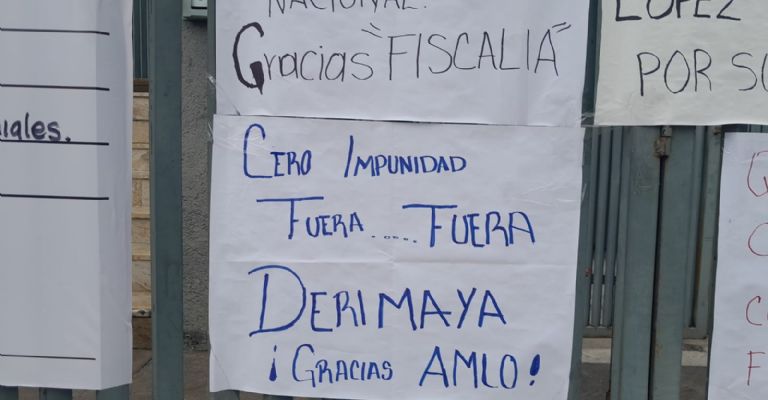 NACIONAL.
Gracias "FISCALIA"
CERO IMPUNIDAD
FUERA......FUERA
DERIMAYA
¡GRACIAS AMLO!
LOPEZ
POR